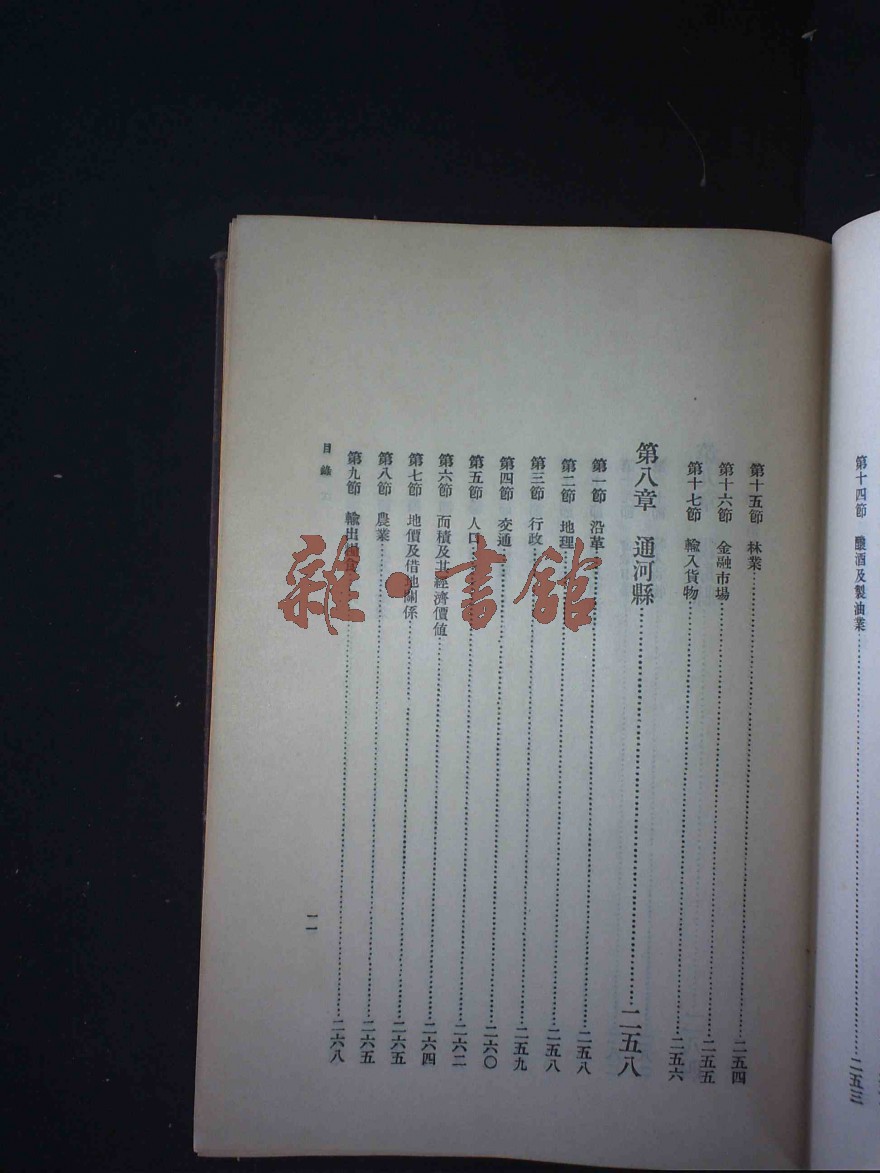 第十四節　釀酒及製油業……二五三
第十五節　林業……二五四
第十六節　金融市場……二五五
第十七節　輸入貨物……二五六
第八章　通河縣……二五八
第一節　沿革……二五八
第二節　地理……二五八
第三節　行政……二五九
第四節　交通……二六〇
第五節　人口……二六二
第六節　面積及其經濟價値……二六四
第七節　地價及借地關係……二六五
第八節　農業……二六五
第九節　輸出……二六八
目錄
一一
雜·書館